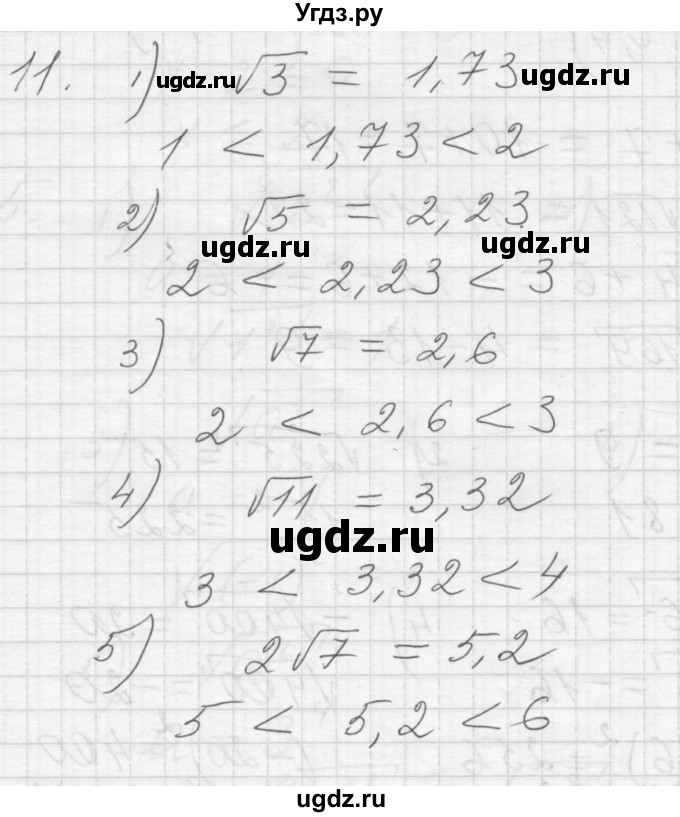 Угдз.ру
11. 1) √3 = 1,73
ugdz.ru ugdz.ru
1 < 1,73 < 2
2) √5 = 2,23
ugdz.ru ugdz.ru
2 < 2,23 < 3
3) √7 = 2,6
2 < 2,6 < 3
4) √11 = 3,32
ugdz.ru
3 < 3,32 < 4
5) 2√7 = 5,2
5 < 5,2 < 6
ugdz.ru